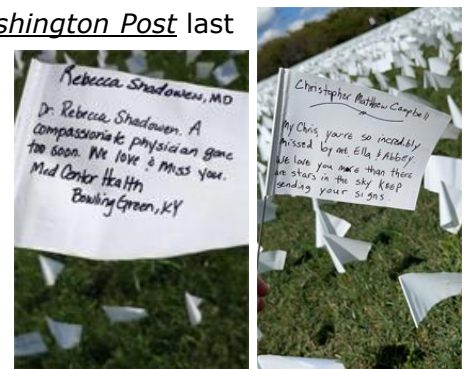 shington Post last
Rebecca Shadowen, MD
Dr. Rebecca Shadowen. A
compassionate physician gone
too soon. We love & miss you.
Med Center Health
Bowling Green, KY
Christopher Matthew Campbell
My Chris, you're so incredibly
missed by me Ella & Abbey.
We love you more than there
are stars in the sky keep
sending your signs.